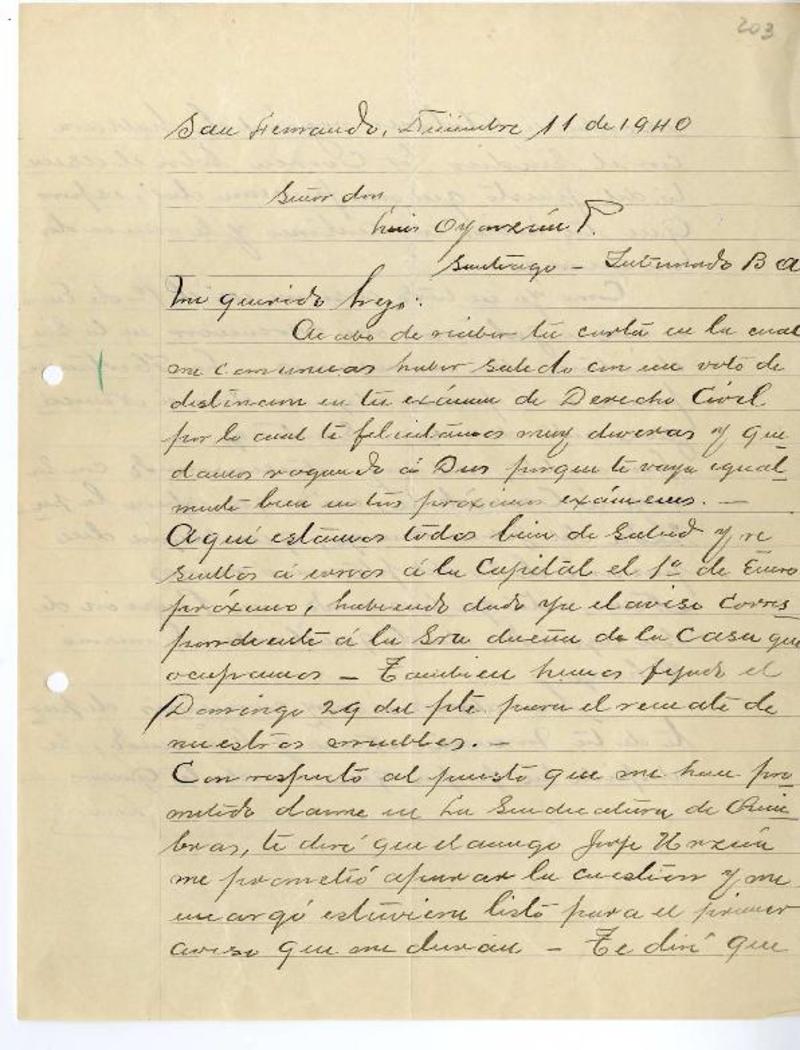 203
San Fernando, Diciembre 11 de 1940
Señor don
Luis Oyarzún P.
Santiago – Internado B A
Mi querido
Acabo de recibir tu carta en la cual
me comunicas haber salido con un voto de
distincion en tu exámen de Derecho Civil
por lo cual te felicitamos muy deveras y que
damos rogando á Dios porque te vaya igual
mente bien en tus próximos exámenes. —
Aquí estamos todos bien de salud y re
sueltos á irnos á la Capital el 1º de Enero
próximo, habiendo dado ya el aviso corres
pondiente á la Sra dueña de la Casa que
ocupamos — Tambien hemos fijado el
Domingo 29 del pte para el remate de
nuestros muebles. —
Con respecto al puesto que me han pro
metido darme en la Sindicatura de Quie
bras, te diré que el amigo Jorje Urzúa
me prometió apurar la cuestion y me
encargó estuviera listo para el primer
aviso que me dieran — Te diré que